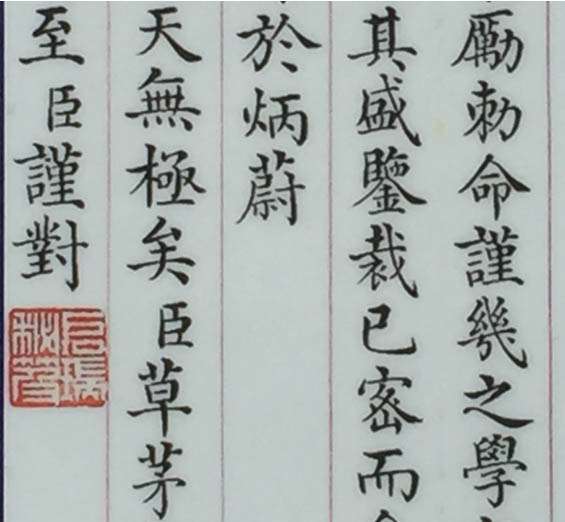 勵勅命謹幾之學
其盛鑒裁已密而
於炳蔚
天無極矣臣草茅
至臣謹對